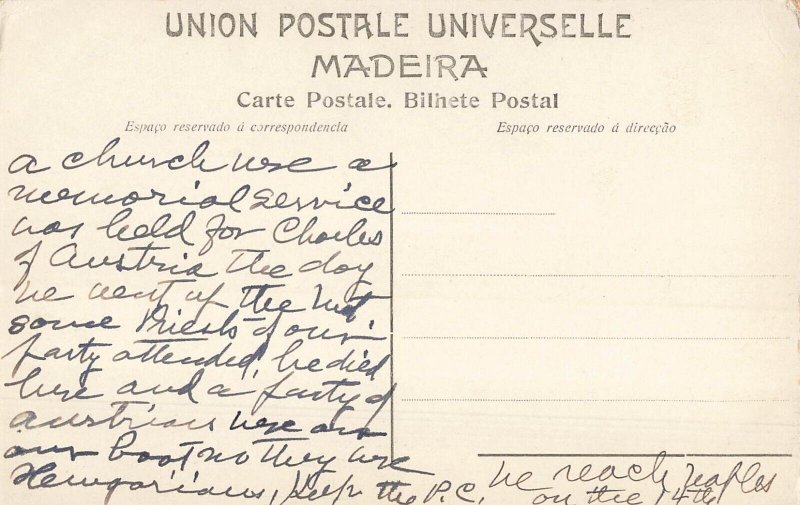 UNION POSTALE UNIVERSELLE
MADEIRA
Carte Postale. Bilhete Postal
Espaço reservado á correspondencia
Espaço reservado á direcção
a church where a
memorial service
was held for Charles
of Austria the day
we went up the
some Priests of our
party attended, he died
here and a party of
Austrians were on
our boat no they were
Hungarians, Keep the P.C.
we reach Naples
on the 14th